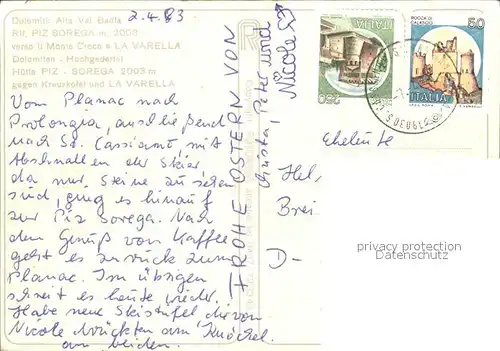 Dolomiti Alta Val Badia
Rif. PIZ SOREGA m. 2003
verso il Monte Croce e LA VARELLA
Dolomiten - Hochgadertal
Hütte PIZ - SOREGA 2003 m
gegen Kreuzkofel und LA VARELLA
2.4.83
Vom Planac nach
anschließend
nach St. Cassiano, mit
Abschnallen der Skier
da nur Steine zu sehen
sind, ging es hinauf
zur Piz Sorega. Nach
dem Genuß von Kaffee
geht es zurück zum
Planac. Im übrigen
schneit es heute wieder.
Habe neue Skistiefel die von
Nicole drückten am Knöchel
an beiden.
FROHE OSTERN VON
Christa, Peter und
Nicole
ITALIA
250
ROCCA DI
CALASCIO
50
ITALIA
Eheleute
Hel,
Brei
D-
privacy protection
Datenschutz